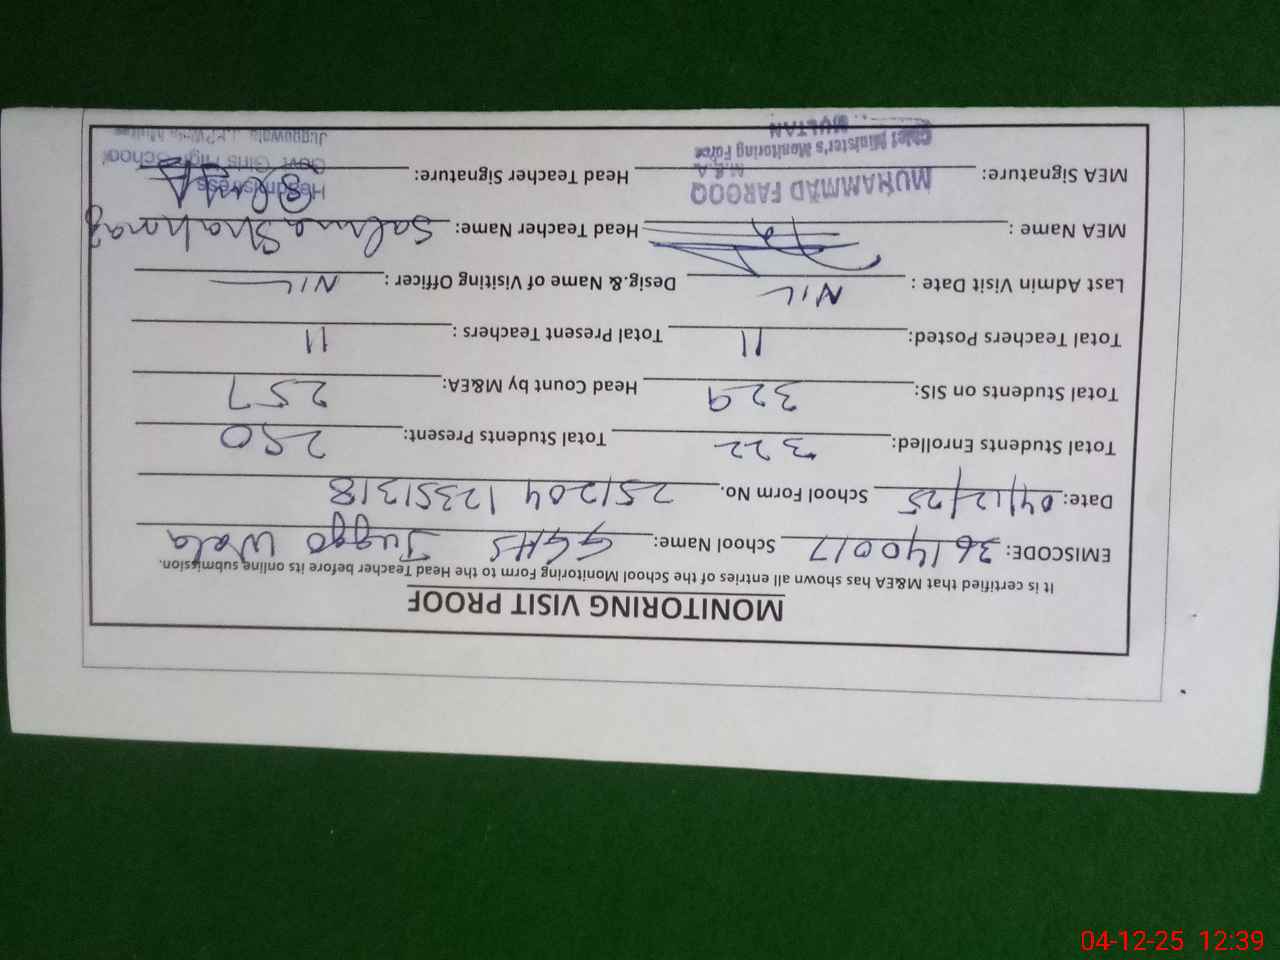 MONITORING VISIT PROOF
It is certified that M&EA has shown all entries of the School Monitoring Form to the Head Teacher before its online submission.
EMISCODE: 36140017 School Name: GGHS Juggo Wala
Date: 04/12/25 School Form No. 251204 12351318
Total Students Enrolled: 322 Total Students Present: 250
Total Students on SIS: 329 Head Count by M&EA: 257
Total Teachers Posted: 11 Total Present Teachers : 11
Last Admin Visit Date : NIL Desig.& Name of Visiting Officer : NIL
MEA Name : Head Teacher Name: Salma Shahnaz
MEA Signature: Head Teacher Signature:
MUHAMMAD FAROOQ
M.E.A
Chief Minister's Monitoring Force
MULTAN
Headmistress
Govt. Girls High School
Juggowala
04-12-25 12:39